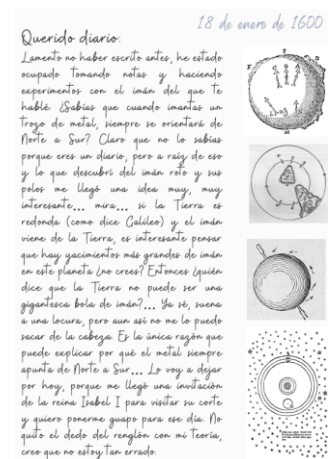 18 de enero de 1600
Querido diario:
Lamento no haber escrito antes, he estado
ocupado tomando notas y haciendo
experimentos con el imán del que te
hablé. ¿Sabías que cuando imantas un
trozo de metal, siempre se orientará de
Norte a Sur? Claro que no lo sabías
porque eres un diario, pero a raíz de eso
y lo que descubrí del imán roto y sus
polos me llegó una idea muy, muy
interesante... mira... si la Tierra es
redonda (como dice Galileo) y el imán
viene de la Tierra, es interesante pensar
que hay yacimientos más grandes de imán
en este planeta ¿no crees? Entonces ¿quién
dice que la Tierra no puede ser una
gigantesca bola de imán?... Ya sé, suena
a una locura, pero aun así no me lo puedo
sacar de la cabeza. Es la única razón que
puede explicar por qué el metal siempre
apunta de Norte a Sur... Lo voy a dejar
por hoy, porque me llegó una invitación
de la reina Isabel I para visitar su corte
y quiero ponerme guapo para ese día. No
quito el dedo del renglón con mi teoría,
creo que no estoy tan errado.